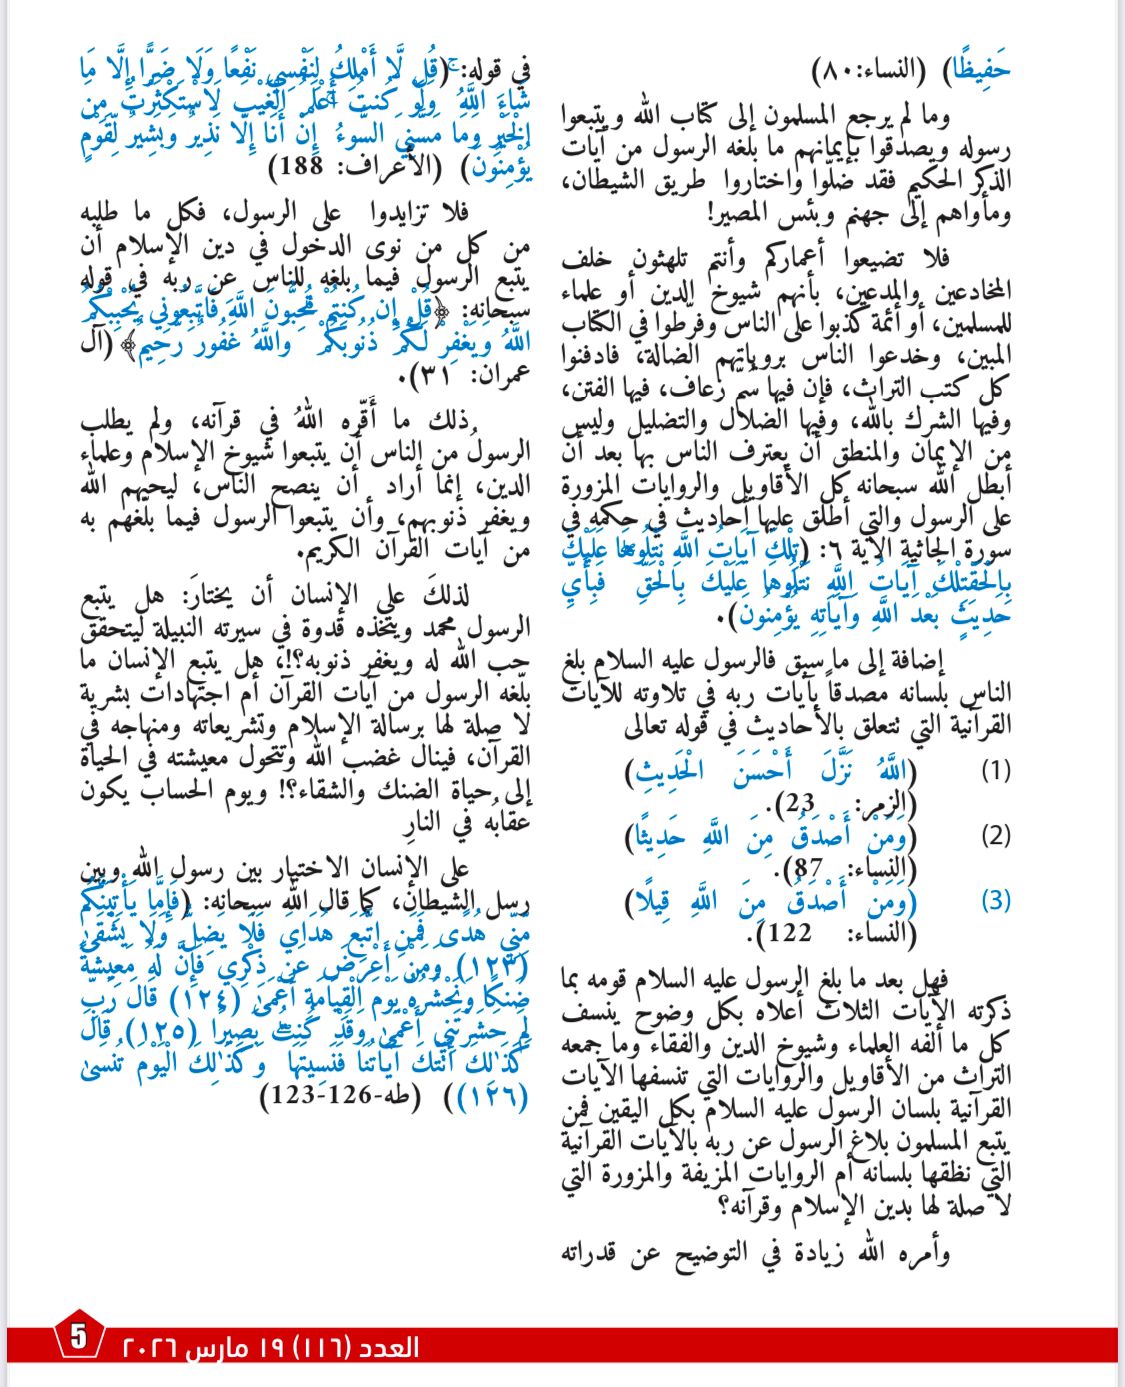 حَفِيظًا) (النساء:٨٠)
وما لم يرجع المسلمون إلى كتاب الله ويتبعوا
رسوله ويصدقوا بإيمانهم ما بلغه الرسول من آيات
الذكر الحكيم فقد ضلّوا واختاروا طريق الشيطان،
ومأواهم إلى جهنم وبئس المصير!
فلا تضيعوا أعماركم وأنتم تلهثون خلف
المخادعين والمدعين، بأنهم شيوخ الدين أو علماء
للمسلمين، أو أئمة كذبوا على الناس وفرّطوا في الكتاب
المبين، وخدعوا الناس بروياتهم الضالة، فادفنوا
كل كتب التراث، فإن فيها سُمّ زعاف، فيها الفتن،
وفيها الشرك بالله، وفيها الضلال والتضليل وليس
من الإيمان والمنطق أن يعترف الناس بها بعد أن
أبطل الله سبحانه كل الأقاويل والروايات المزورة
على الرسول والتي أطلق عليها أحاديث في حكمه في
سورة الجاثية الآية ٦: (تِلْكَ آيَاتُ اللَّهِ نَتْلُوهَا عَلَيْكَ
بِالْحَقِّتِلْكَ آيَاتُ اللَّهِ نَتْلُوهَا عَلَيْكَ بِالْحَقِّ فَبِأَيِّ
حَدِيثٍ بَعْدَ اللَّهِ وَآيَاتِهِ يُؤْمِنُونَ).
إضافة إلى ما سبق فالرسول عليه السلام بلغ
الناس بلسانه مصدقاً بآيات ربه في تلاوته للآيات
القرآنية التي تتعلق بالأحاديث في قوله تعالى
(1) (اللَّهُ نَزَّلَ أَحْسَنَ الْحَدِيثِ)
(الزمر: 23).
(2) (وَمَنْ أَصْدَقُ مِنَ اللَّهِ حَدِيثًا)
(النساء: 87).
(3) (وَمَنْ أَصْدَقُ مِنَ اللَّهِ قِيلًا)
(النساء: 122).
فهل بعد ما بلغ الرسول عليه السلام قومه بما
ذكرته الآيات الثلاث أعلاه بكل وضوح ينسف
كل ما ألفه العلماء وشيوخ الدين والفقاء وما جمعه
التراث من الأقاويل والروايات التي تنسفها الآيات
القرآنية بلسان الرسول عليه السلام بكل اليقين فمن
يتبع المسلمون بلاغ الرسول عن ربه بالآيات القرآنية
التي نظقها بلسانه أم الروايات المزيفة والمزورة التي
لا صلة لها بدين الإسلام وقرآنه؟
وأمره الله زيادة في التوضيح عن قدراته
في قوله: (قُل لَّا أَمْلِكُ لِنَفْسِي نَفْعًا وَلَا ضَرًّا إِلَّا مَا
شَاءَ اللَّهُ ۚ وَلَوْ كُنتُ أَعْلَمُ الْغَيْبَ لَاسْتَكْثَرْتُ مِنَ
الْخَيْرِ وَمَا مَسَّنِيَ السُّوءُ ۚ إِنْ أَنَا إِلَّا نَذِيرٌ وَبَشِيرٌ لِّقَوْمٍ
يُؤْمِنُونَ) (الأعراف: 188)
فلا تزايدوا على الرسول، فكل ما طلبه
من كل من نوى الدخول في دين الإسلام أن
يتبع الرسول فيما بلغه للناس عن ربه في قوله
سبحانه: ﴿قُلْ إِن كُنتُمْ تُحِبُّونَ اللَّهَ فَاتَّبِعُونِي يُحْبِبْكُمُ
اللَّهُ وَيَغْفِرْ لَكُمْ ذُنُوبَكُمْ وَاللَّهُ غَفُورٌ رَّحِيمٌ﴾ (آل
عمران: ٣١).
ذلك ما أَقرّه اللهُ في قرآنه، ولم يطلب
الرسولُ من الناس أن يتبعوا شيوخ الإسلام وعلماء
الدين، إنما أراد أن ينصح الناس، ليحبهم الله
ويغفر ذنوبهم، وأن يتبعوا الرسول فيما بلّغهم به
من آيات القرآن الكريم.
لذلكَ على الإنسان أن يختارَ: هل يتبع
الرسول محمد ويتخذه قدوة في سيرته النبيلة ليتحقق
حب الله له ويغفر ذنوبه؟!، هل يتبع الإنسان ما
بلّغه الرسول من آيات القرآن أم اجتهادات بشرية
لا صلة لها برسالة الإسلام وتشريعاته ومنهاجه في
القرآن، فينال غضب الله وتتحول معيشته في الحياة
إلى حياة الضنك والشقاء؟! ويوم الحساب يكون
عقابُه في النارِ
على الإنسان الاختيار بين رسول الله وبين
رسل الشيطان، كما قال الله سبحانه: (فَإِمَّا يَأْتِيَنَّكُم
مِّنِّي هُدًى فَمَنِ اتَّبَعَ هُدَايَ فَلَا يَضِلُّ وَلَا يَشْقَىٰ
(١٢٣) وَمَنْ أَعْرَضَ عَن ذِكْرِي فَإِنَّ لَهُ مَعِيشَةً
ضَنكًا وَنَحْشُرُهُ يَوْمَ الْقِيَامَةِ أَعْمَىٰ (١٢٤) قَالَ رَبِّ
لِمَ حَشَرْتَنِي أَعْمَىٰ وَقَدْ كُنتُ بَصِيرًا (١٢٥) قَالَ
كَذَٰلِكَ أَتَتْكَ آيَاتُنَا فَنَسِيتَهَا ۖ وَكَذَٰلِكَ الْيَوْمَ تُنسَىٰ
(١٢٦)) (طه-126-123)
العدد (١١٦) ١٩ مارس ٢٠٢٦ 5